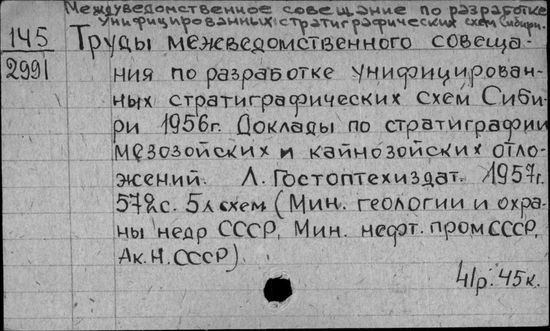 Междуведомственное совещание по разработке
унифицированных стратиграфических схем Сибири.
145
2991
Труды межведомственного совеща-
ния по разработке унифицирован-
ных стратиграфических схем Сиби-
ри 1956г. Доклады по стратиграфии
мезозойских и кайнозойских отло-
жений. Л. Гостоптехиздат. 1957г.
572с. 5л схем (Мин. геологии и охра-
ны недр СССР, Мин. нефт. пром СССР,
Ак. Н. СССР).
41р. 45к.